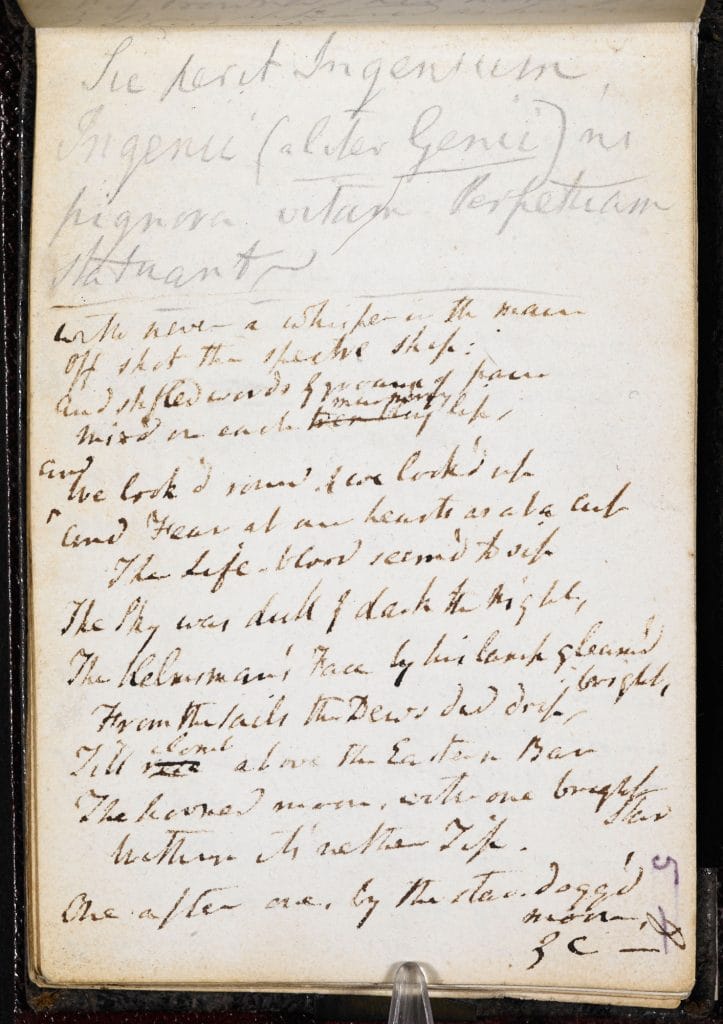 Sic perit Ingenium,
Ingenii (aliter Genii) ni
pignora vitam Perpetuam
statuant—
with never a whisper in the main
Off shot the spectre ship:
And stifled words & groans of pain
murmuring
mix'd on each trembling lip,
And
We look'd round & we look'd up
And Fear at our hearts as at a cup
The Life-blood seem'd to sip
The Sky was dull & dark the Night,
The Helmsman's Face by his lamp gleam'd
bright,
From the sails the Dews did drip,
clomb
Till above the Eastern Bar
The horned moon, with one bright
Star
Within its nether Tip.
One after one, by the star-dogg'd
moon,
&c —